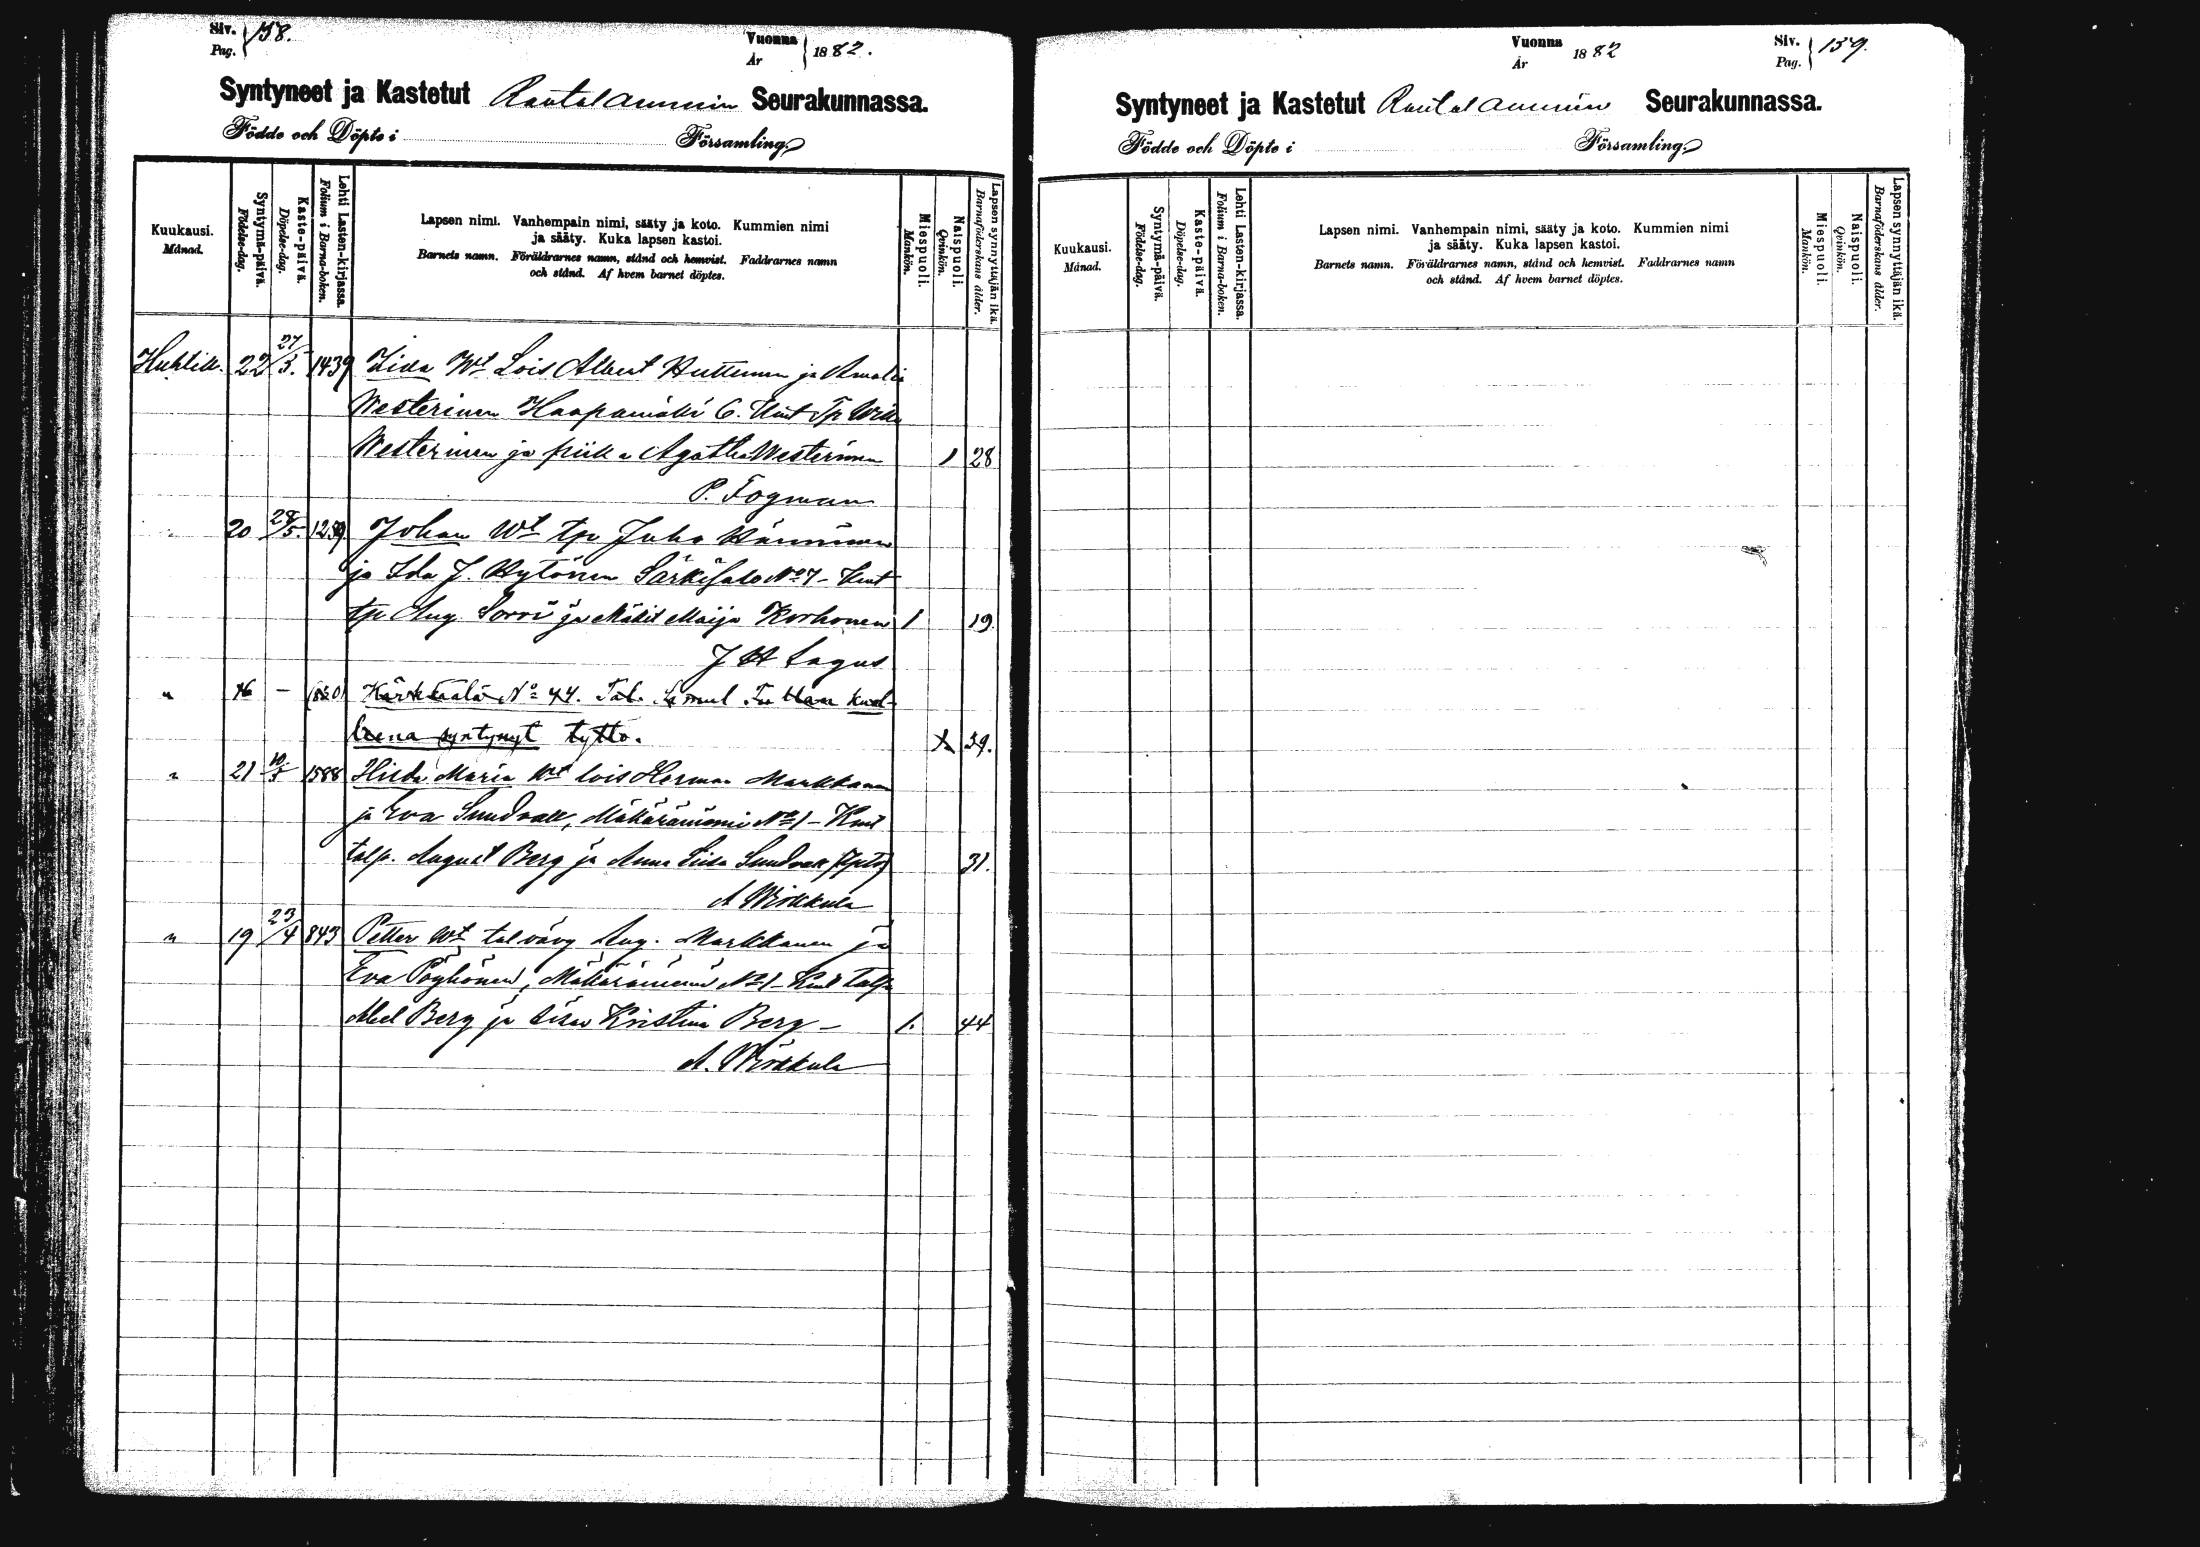 Siv. Pag. 158.
Vuonna År 1882.
Syntyneet ja Kastetut Rautalammin Seurakunnassa.
Födde och Döpte i Församling.
Kuukausi. Månad.
Syntymä-päivä. Födelse-dag.
Kaste-päivä. Döpelse-dag.
Lehti Lasten-kirjassa. Folium i Barna-boken.
Lapsen nimi. Vanhempain nimi, sääty ja koto. Kummien nimi
ja sääty. Kuka lapsen kastoi.
Barnets namn. Föräldrarnes namn, stånd och hemvist. Faddrarnes namn
och stånd. Af hvem barnet döptes.
Miespuoli. Mankön.
Naispuoli. Qvinkön.
Lapsen synnyttäjän ikä. Barnaföderskans ålder.
Huhtik. 22 27/5. 1439 Lois Albert Huttunen ja Amalia
Westerinen Haapamäki 6. Kmt Tp
Westerinen ja piika Agatha Westerinen 1 28
P. Fogman
" 20 28/5. 1259 Johan Wt tpr Juho Hänninen
ja Ida J. Hytönen Särkisalo No 7 - Kmt
tp Aug. Sorri ja Mäkit Maija Korhonen 1 19.
J H Lagus
" 16 - Kärkkäälä No 44. Tal.
leena syntynyt tyttö. 1 39.
" 21 10/5 1588 Hilda Maria Wt lois Herman Markkanen
ja Eva Sundvall, No 1 - Kmt
talp. August Berg ja Anna Liisa Sundvall 31.
A Wirkkula
" 19 23/4 843 Petter Wt talvävy Aug. Markkanen ja
Eva Pöyhönen, No 1 - Kmt talp
Abel Berg ja Kristina Berg - 1. 44
A. Wirkkula
Vuonna År 1882
Siv. Pag. 159.
Syntyneet ja Kastetut Rautalammin Seurakunnassa.
Födde och Döpte i Församling.
Kuukausi. Månad.
Syntymä-päivä. Födelse-dag.
Kaste-päivä. Döpelse-dag.
Lehti Lasten-kirjassa. Folium i Barna-boken.
Lapsen nimi. Vanhempain nimi, sääty ja koto. Kummien nimi
ja sääty. Kuka lapsen kastoi.
Barnets namn. Föräldrarnes namn, stånd och hemvist. Faddrarnes namn
och stånd. Af hvem barnet döptes.
Miespuoli. Mankön.
Naispuoli. Qvinkön.
Lapsen synnyttäjän ikä. Barnaföderskans ålder.